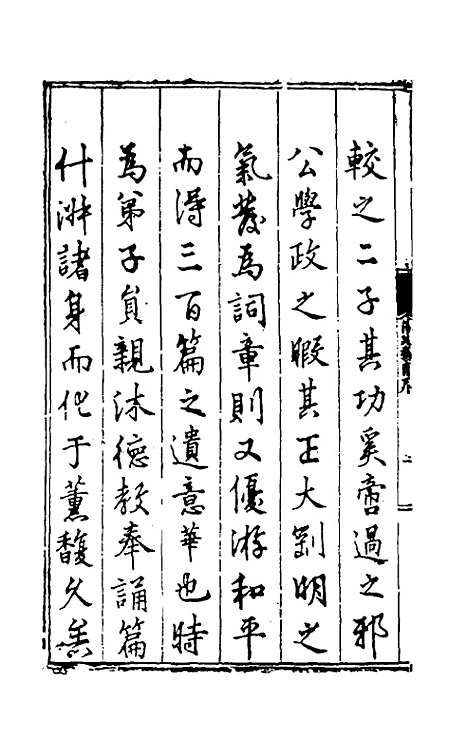 較之二子其功奚啻過之邪
公學政之暇其正大剴明之
氣發為詞章則又優游和平
而得三百篇之遺意華也時
為弟子員親沐德教奉誦篇
什淑諸身而化于薰馥久矣